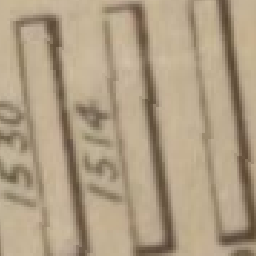 1530
1514